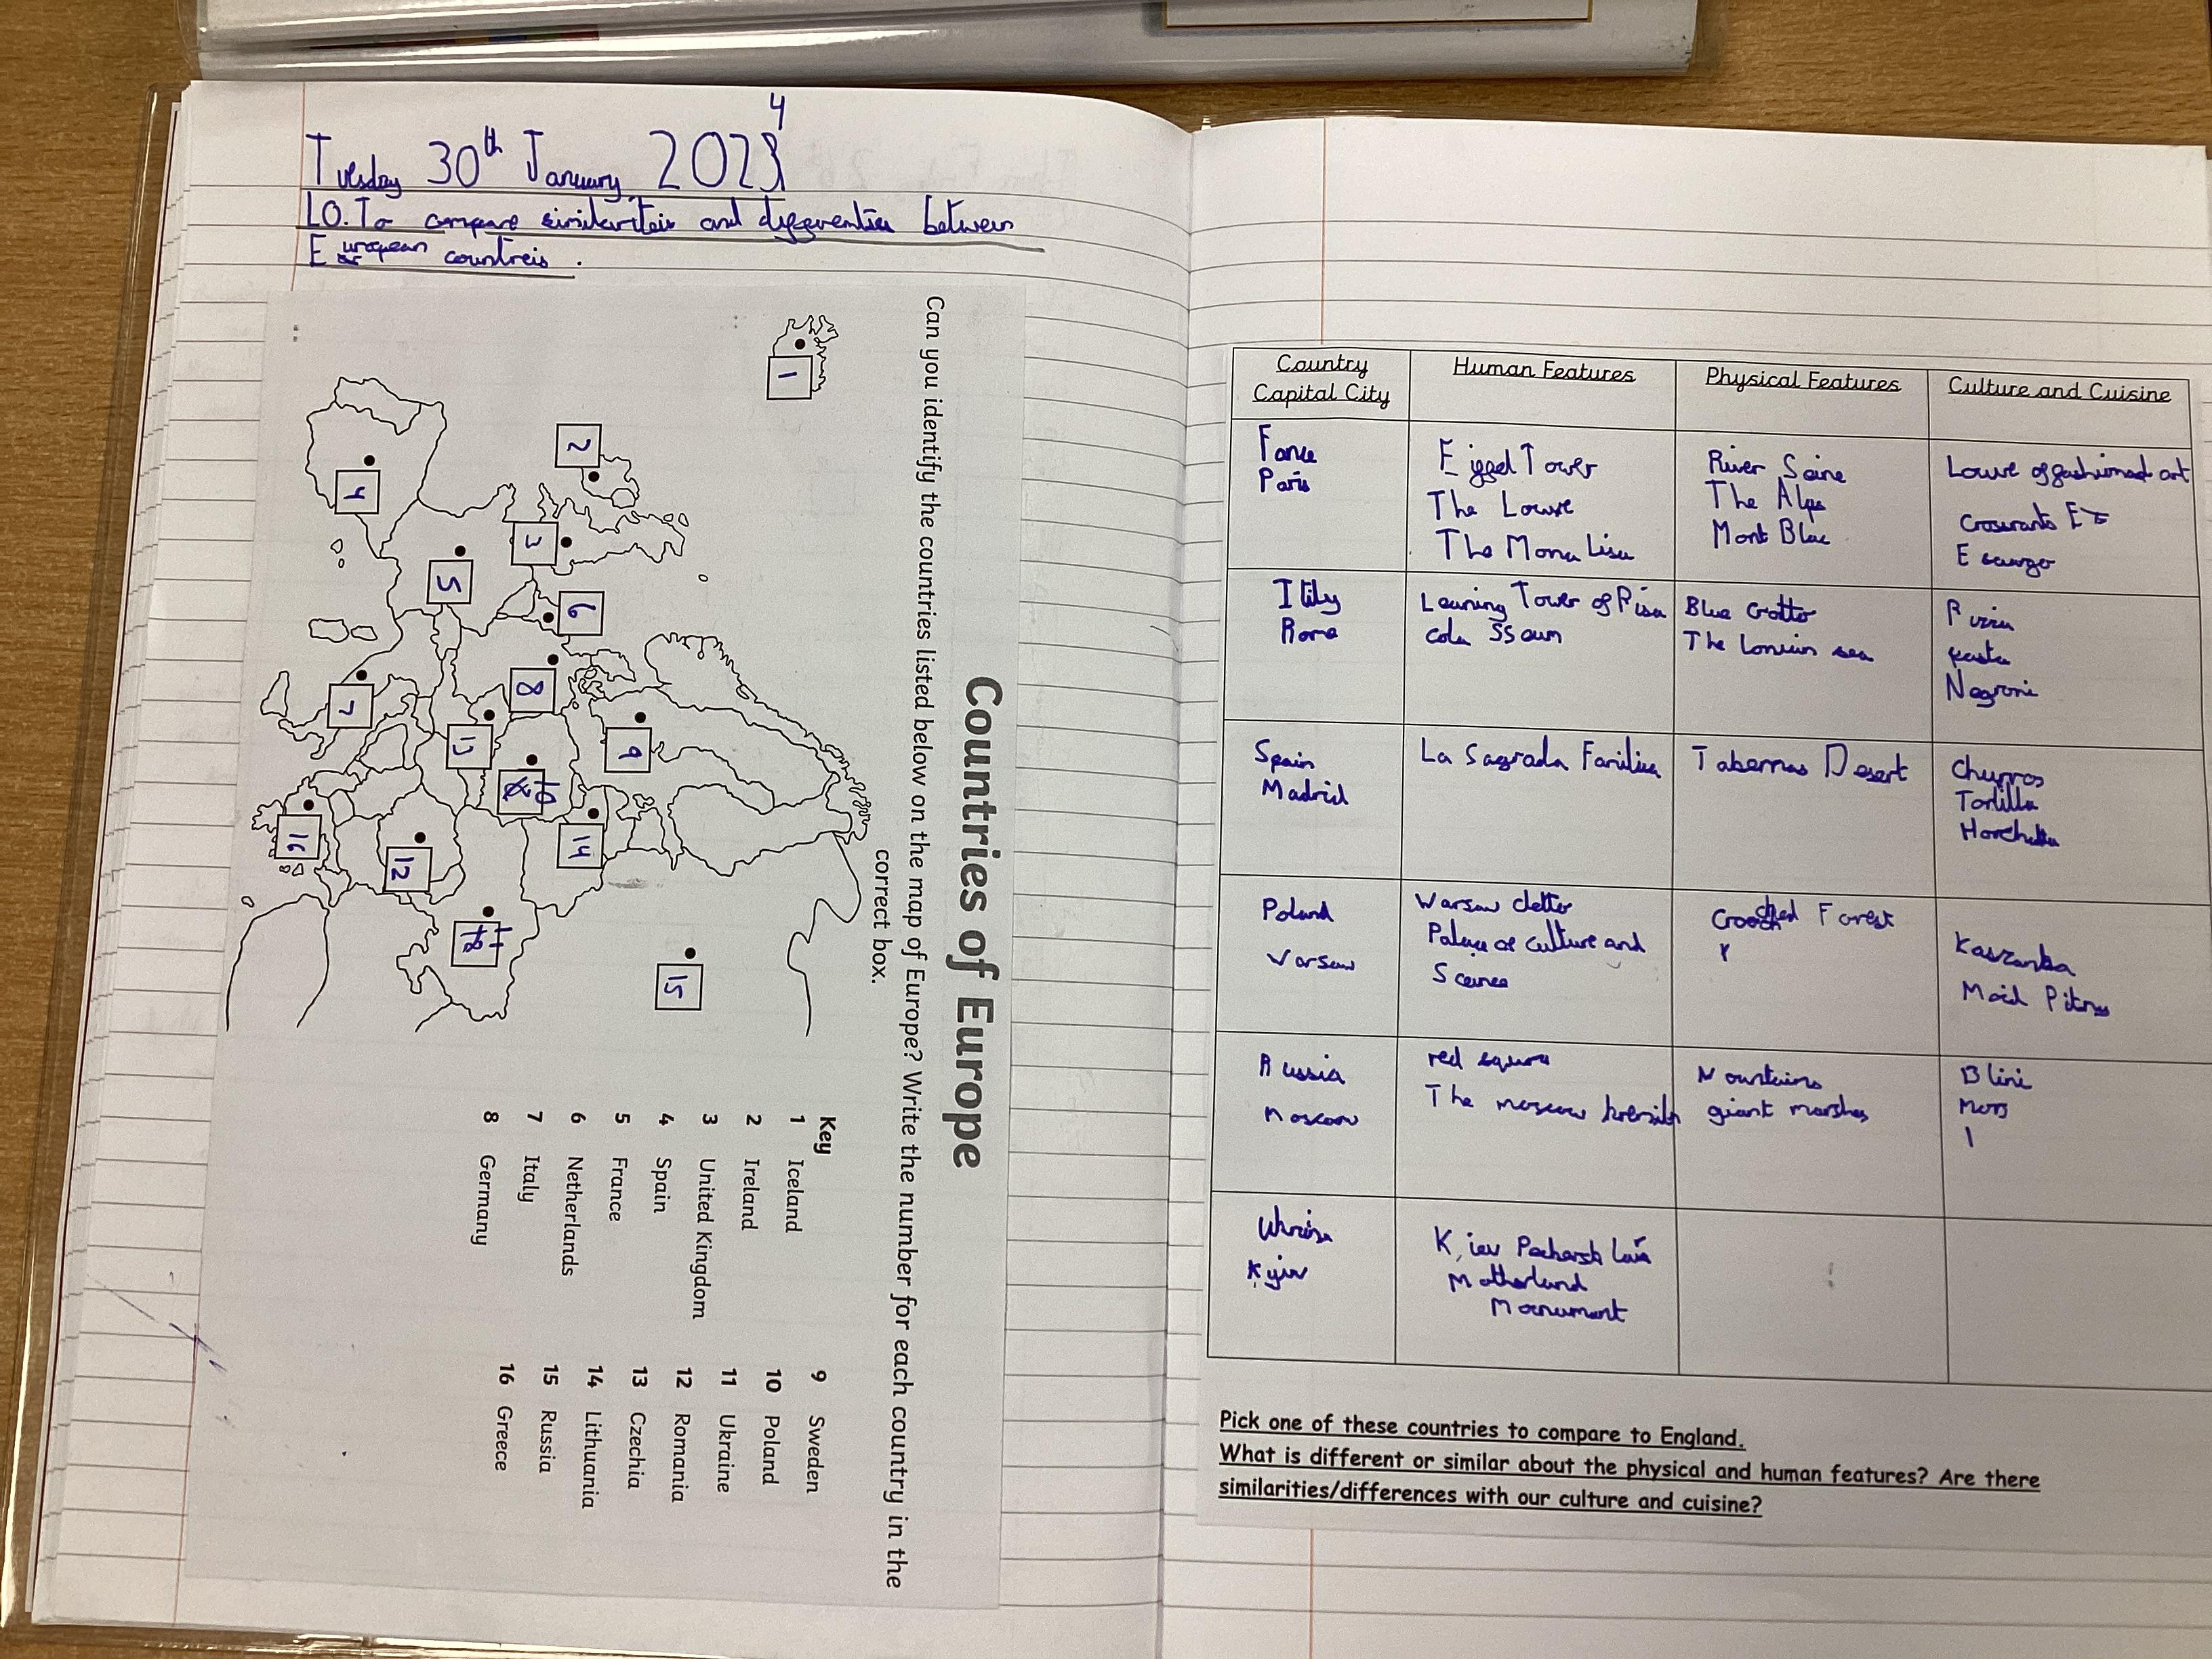 Tuesday 30th January 2024
LO. To compare similariteis and differenties between
European countreis.
Countries of Europe
Can you identify the countries listed below on the map of Europe? Write the number for each country in the
correct box.
1
2
3
4
5
6
7
8
9
10
13
14
12
11
15
16
Key
1 Iceland
2 Ireland
3 United Kingdom
4 Spain
5 France
6 Netherlands
7 Italy
8 Germany
9 Sweden
10 Poland
11 Ukraine
12 Romania
13 Czechia
14 Lithuania
15 Russia
16 Greece
Country
Capital City
Human Features
Physical Features
Culture and Cuisine
Paris
Tower
The
The Mona Lisa
River Seine
The Alps
Mont
Itily
Rome
Leaning Tower of Pisa
Blue Grotto
The sea
pasta
Negroni
Spain
Madrid
La Sagrada Familia
Tabernas Desert
Churros
Tortilla
Poland
Warsaw
Palace of culture and
Forest
Kaszanka
Russia
Moscow
red
The moscow
Mountains
giant marshes
Blini
Mors
Kyiv
Motherland
Monument
Pick one of these countries to compare to England.
What is different or similar about the physical and human features? Are there
similarities/differences with our culture and cuisine?